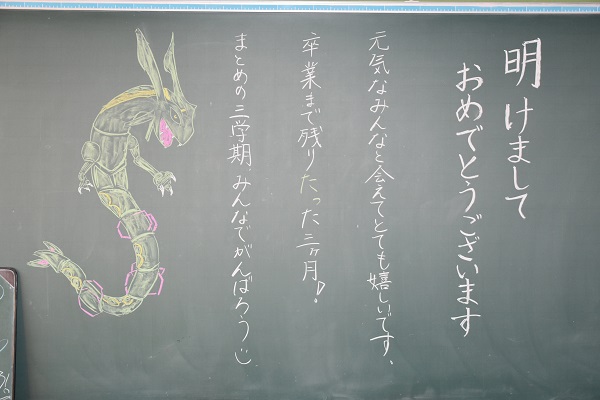 明けまして
おめでとうございます
元気なみんなと会えてとても嬉しいです、
卒業まで残りたった三ヶ月!
まとめの三学期、みんなでがんばろう